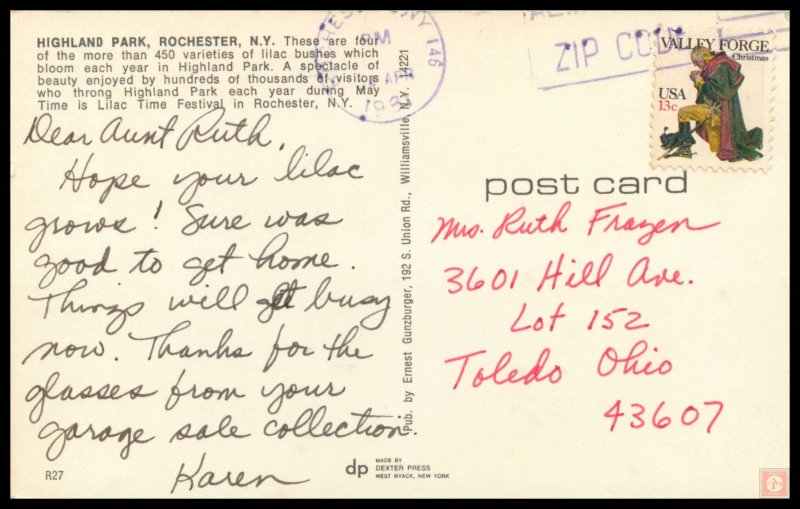 HIGHLAND PARK, ROCHESTER, N.Y. These are four
of the more than 450 varieties of lilac bushes which
bloom each year in Highland Park. A spectacle of
beauty enjoyed by hundreds of thousands of visitors
who throng Highland Park each year during May
Time is Lilac Time Festival in Rochester, N.Y.
Dear Aunt Ruth,
Hope your lilac
grows! Sure was
good to get home.
Things will get busy
now. Thanks for the
glasses from your
garage sale collection.
Karen
R27
Pub. by Ernest Gunzburger, 192 S. Union Rd., Williamsville, N.Y. 14221
NY 146
PM
ZIP CODE
VALLEY FORGE
Christmas
USA
13c
post card
Mrs. Ruth Frazen
3601 Hill Ave.
Lot 152
Toledo Ohio
43607
dp
MADE BY
DEXTER PRESS
WEST NYACK, NEW YORK